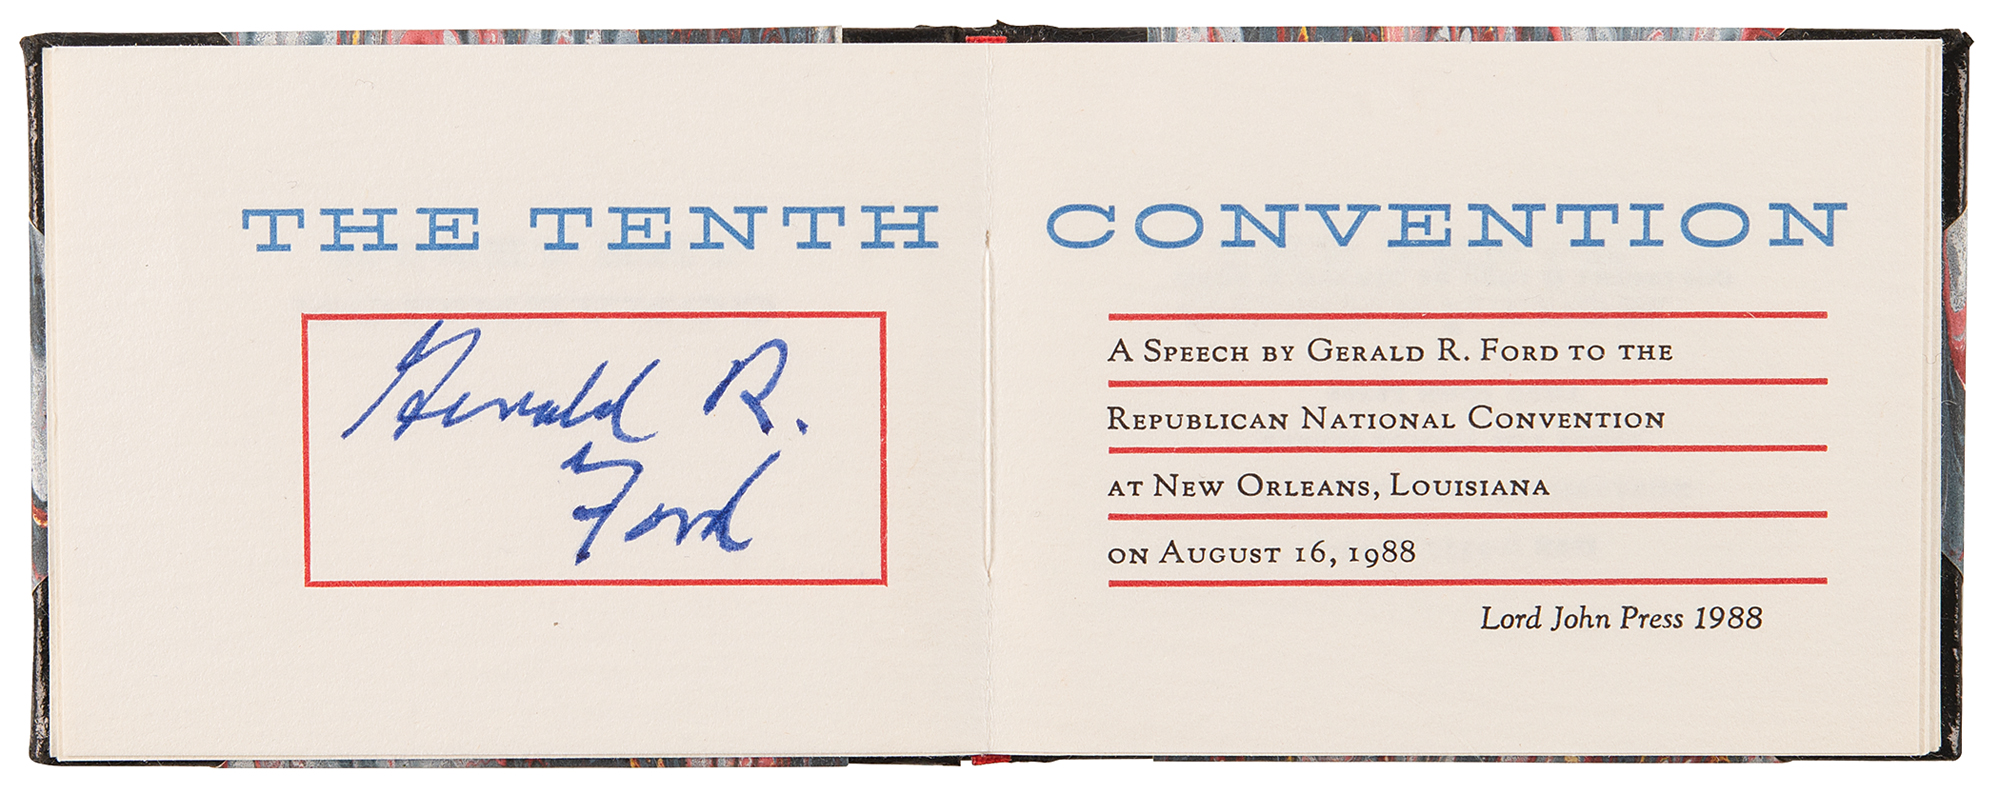 THE TENTH CONVENTION
Gerald R.
Ford
A Speech by Gerald R. Ford to the
Republican National Convention
at New Orleans, Louisiana
on August 16, 1988
Lord John Press 1988